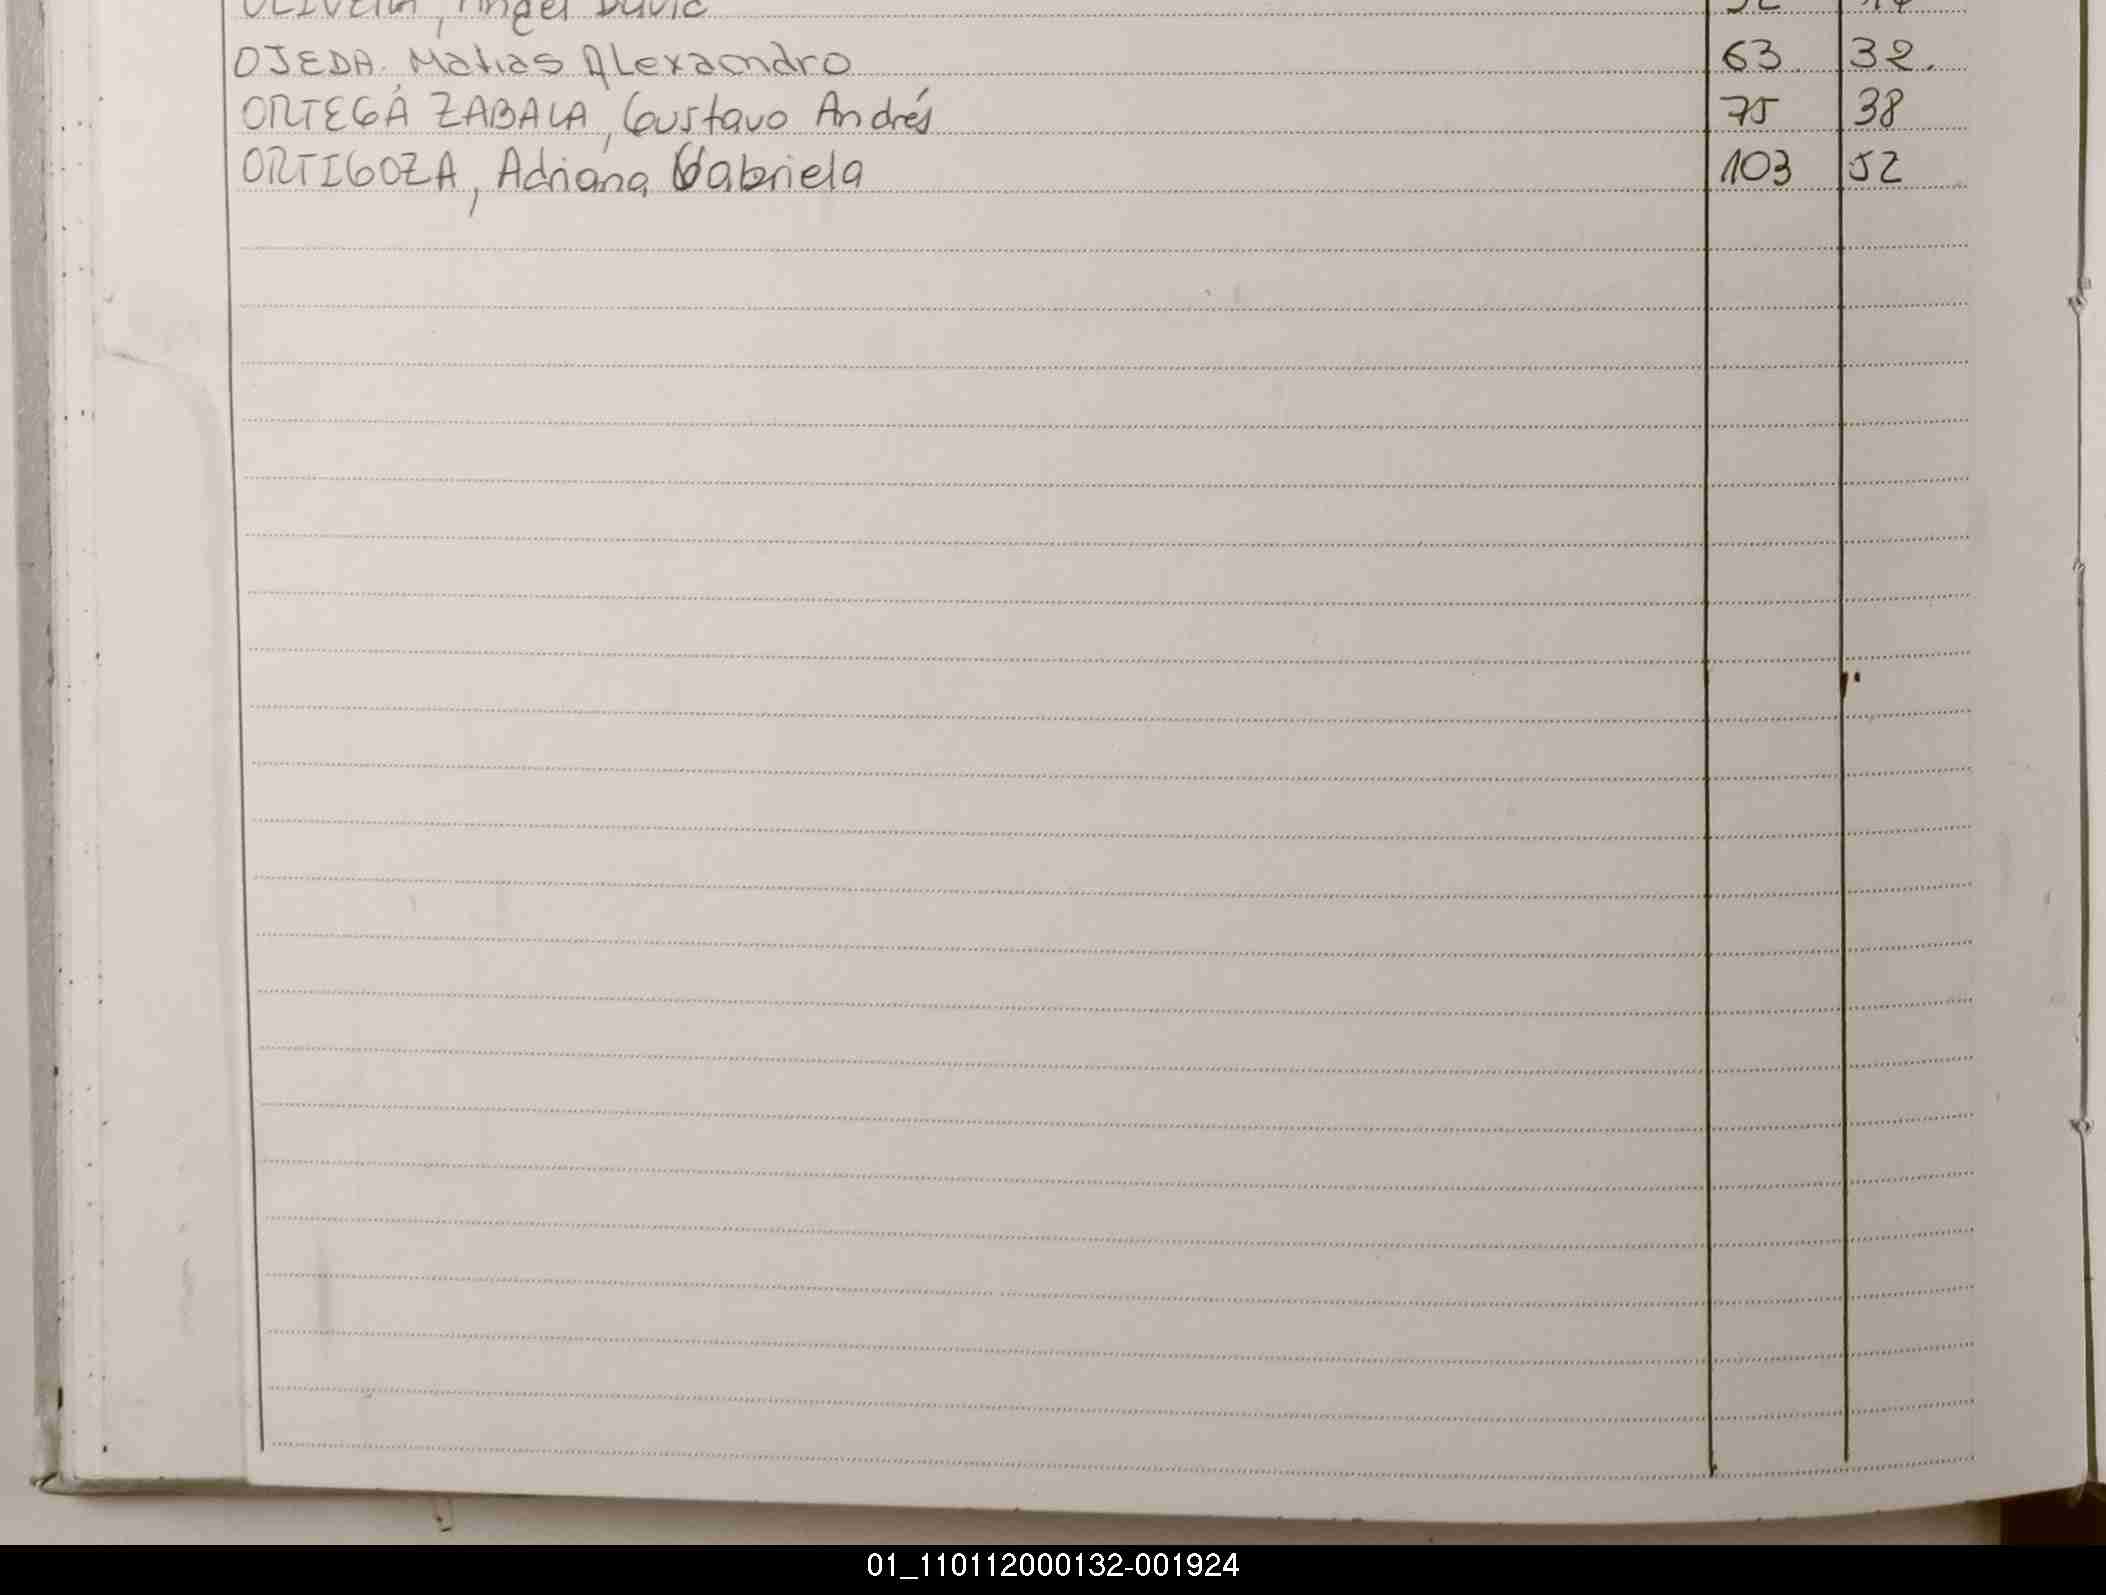 Angel David
OJEDA. Matias Alexandro 63 32.
ORTEGA ZABALA, Gustavo Andrés 75 38
ORTIGOZA, Adriana Gabriela 103 52
01_110112000132-001924